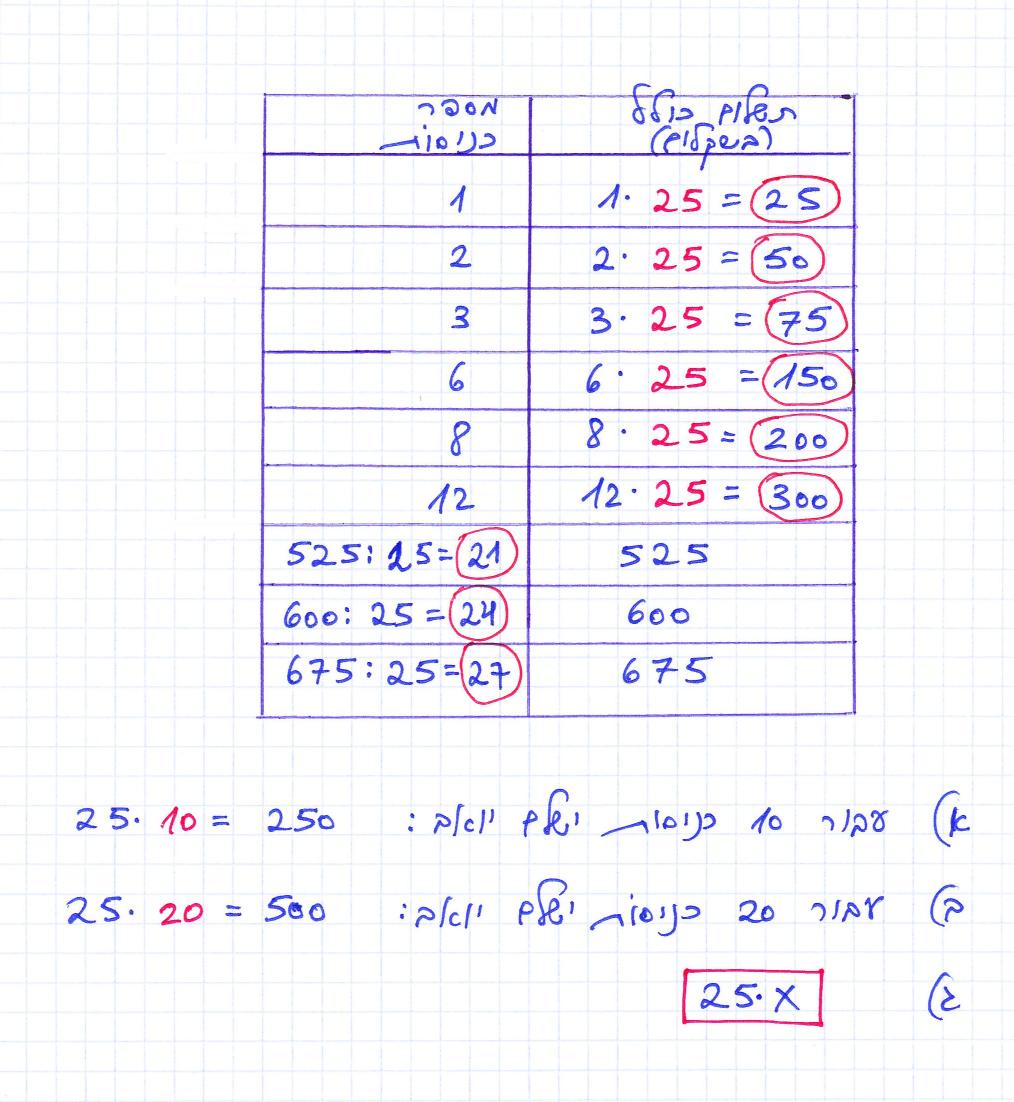 מספר כניסות	תשלום כולל (בשקלים)
1	1 · 25 = 25
2	2 · 25 = 50
3	3 · 25 = 75
6	6 · 25 = 150
8	8 · 25 = 200
12	12 · 25 = 300
525 : 25 = 21	525
600 : 25 = 24	600
675 : 25 = 27	675
א) עבור 10 כניסות ישלם יואב: 25 · 10 = 250
ב) עבור 20 כניסות ישלם יואב: 25 · 20 = 500
ג) 25 · X